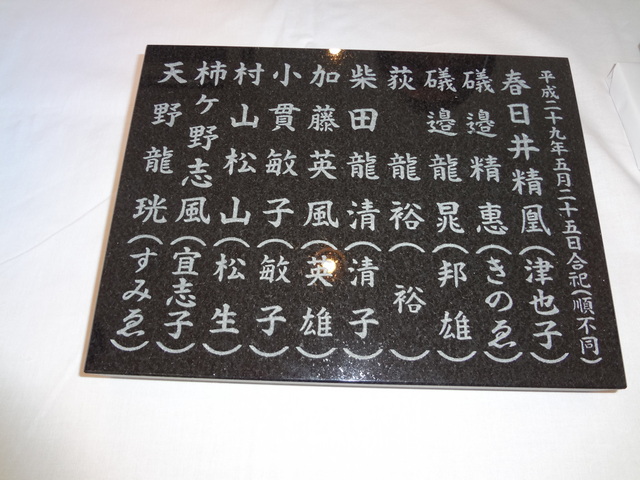 平成二十九年五月二十五日合祀(順不同)
春日井精凰(津也子)
礒邉精惠(きのゑ)
礒邉龍晃(邦雄)
荻龍裕(裕)
柴田龍清(清子)
加藤英風(英雄)
小貫敏子(敏子)
村山松山(松生)
柿ケ野志風(宜志子)
天野龍珖(すみゑ)